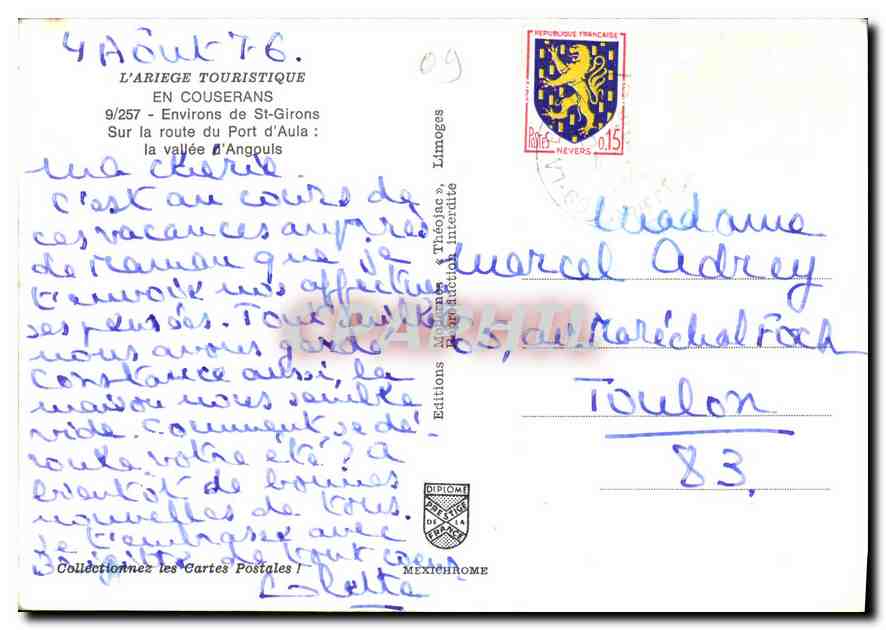 4 Août 76.
L'ARIEGE TOURISTIQUE
EN COUSERANS
9/257 - Environs de St-Girons
Sur la route du Port d'Aula :
la vallée d'Angouls
Ma chérie.
C'est au cours de
ces vacances auprès
de Maman que je
t'envoie nos affectueu
ses pensées. Tout
nous avons gardé
Constance aussi, la
maison nous semble
vide. Comment se dé-
roule votre été ? A
bientôt de bonnes
nouvelles de tous.
Je t'embrasse avec
Brigitte de tout coeur
Colette
Collectionnez les Cartes Postales !
Editions Modernes « Théojac », Limoges
Reproduction interdite
DIPLOME
PRESTIGE
DE LA
FRANCE
MEXICHROME
09
REPUBLIQUE FRANÇAISE
Postes 0,15
NEVERS
Madame
Marcel Adrey
65, av Maréchal Foch
Toulon
83.